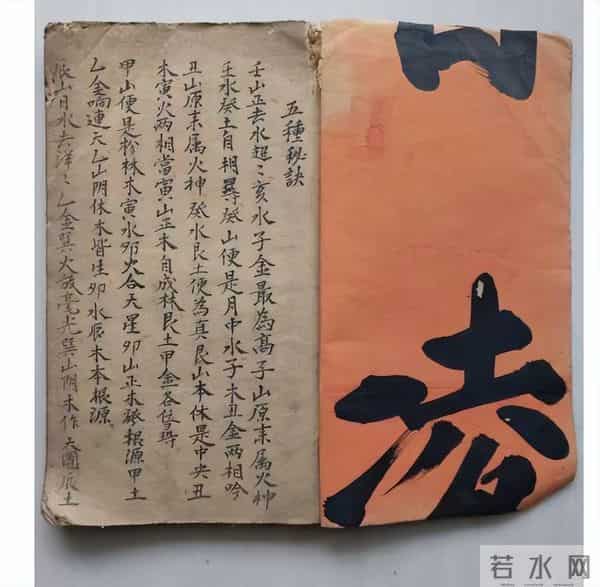 五種秘訣
壬山正去水超〻亥水子金最為高子山原来属火神
壬水癸土自相尋癸山便是月中水子木丑金两相吟
丑山原来属火神癸水艮土便為真艮山本休是中央丑
木寅火两相當寅山正木自成林艮土甲金各尋
甲山便是松林木寅水卯火合天星卯山正木根源甲土
乙金响連天乙山阴休木皆生卯水辰木本根源
山月水去洋〻乙金巽火放毫光巽山阴木作天圍辰土
若水网